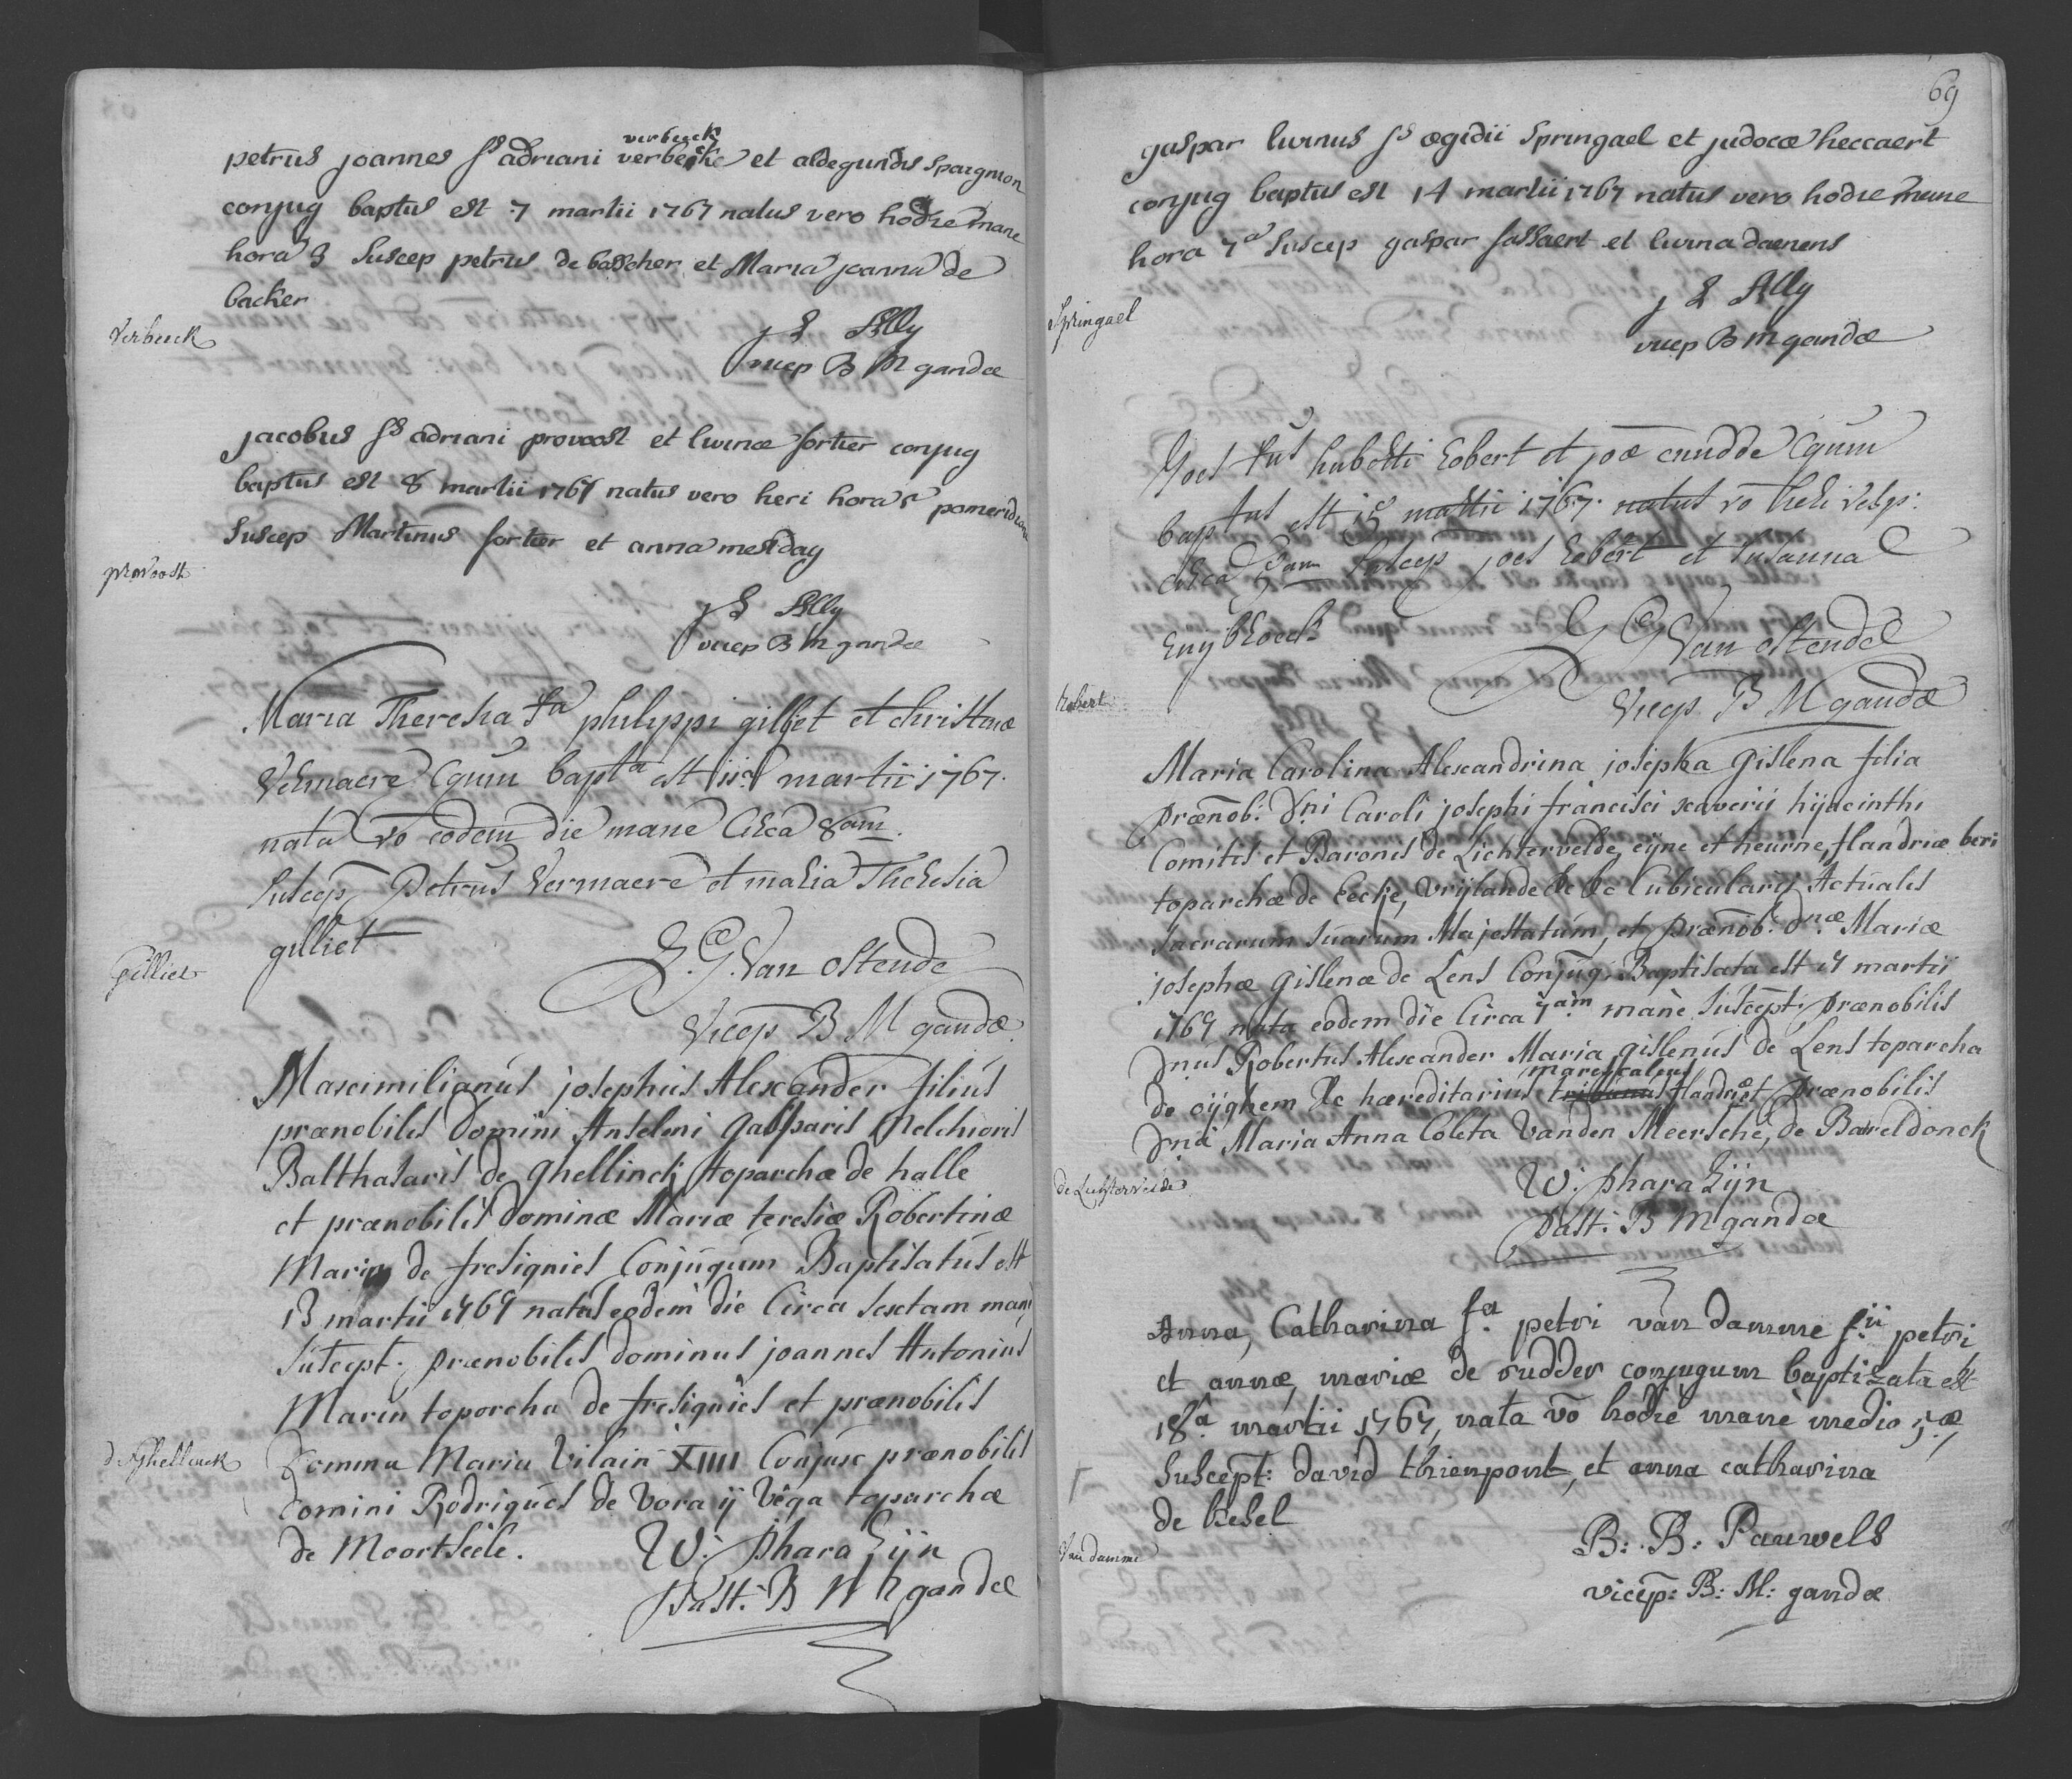 verbeeck
petrus joannes fs adriani verbeske et aldegundis spaignion
conjug baptus est 7 martii 1767 natus vero hodie mane
hora 3 Suscep petrus de basscher et Maria joanna de
backer
Verbeeck
j S Ally
vicep B M gandæ
jacobus fs adriani provoost et livinæ fortier conjug
baptus est 8 martii 1767 natus vero heri hora pomeridiana
Suscep Martinus fortier et anna mesdag
provoost
j S Ally
vicep B M gandæ
Maria Theresia fa philippi gilliet et christinæ
Vermaere Cgum bapta est martii 1767.
nata vo eodem die mane Circa 8am.
Suscep Petrus Vermaere et maria Theresia
gilliet
Gilliet
G. Van Ostende
Vicep B M gandæ
Maximilianus josephus Alexander filius
prænobilis Domini Anselmi Gasparis Melchioris
Balthasaris de ghellinck toparchæ de halle
et prænobilis Dominæ Mariæ teresiæ Robertinæ
Marin de fresignies Conjugum Baptisatus est
13 martii 1767 natus eodem die Circa sextam mane
Suscept. prænobilis dominus joannes Antonius
Marin toparcha de fresignies et prænobilis
Domina Maria Vilain XIIII Conjux prænobilis
de Ghellinck
Domini Rodrigues de Vora ÿ Vega toparchæ
de Moortseele.
W: Pharazijn
Past: B M gandæ
69
gaspar livinus fs ægidii Springael et judocæ heccaert
conjug baptus est 14 martii 1767 natus vero hodie mane
hora 7a Suscep gaspar fassaert et livina daenens
Springael
j S Ally
vicep B M gandæ
Joes fus huberti Robert et joæ cnudde Cgum
baptus est 15 martii 1767. natus vo heri vesp:
circa am Suscep joes Robert et susanna
Ruybroeck
G Van Ostende
Robert
Vicep B M gandæ
Maria Carolina Alexandrina josepha gislena filia
prænob: Dni Caroli josephi francisci xaverii hijacinthi
Comitis et Baronis de Lichtervelde, eijne et heurne, flandriæ beri
toparchæ de Eecke, Vrijlande &c &c Cubicularij Actualis
Sacrarum Suarum Majestatum, et prænob: Dnæ Mariæ
josephæ gislenæ de Lens Conjug: Baptisata est 17 martii
1767 nata eodem die Circa 7am mane, Suscept: prænobilis
Dnus Robertus Alexander Maria gislenus de Lens toparcha
marescalcus
de oijghem &c hæreditarius tribunus flandriæ et prænobilis
Dna Maria Anna Coleta Vanden Meersche, de Bareldonck
de Lichtervelde
W: Pharazijn
Past: B M gandæ
Anna, Catharina fa petri van damme fii petri
et annæ, mariæ de rudder conjugum baptizata est
18a martii 1767, nata vo hodie mane medio 5æ,
Suscept: david thienpont, et anna catharina
de kesel
B: B: Pauwels
Van damme
vicep: B: M: gandæ